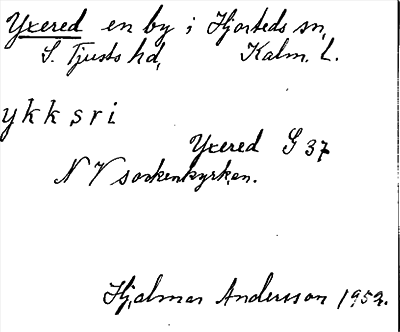 Yxered en by i Hjorteds sn,
S. Tjusts hd, Kalm. L.
ykksri
Yxered G 37
N V sockenkyrkan.
Hjalmar Andersson 1952.